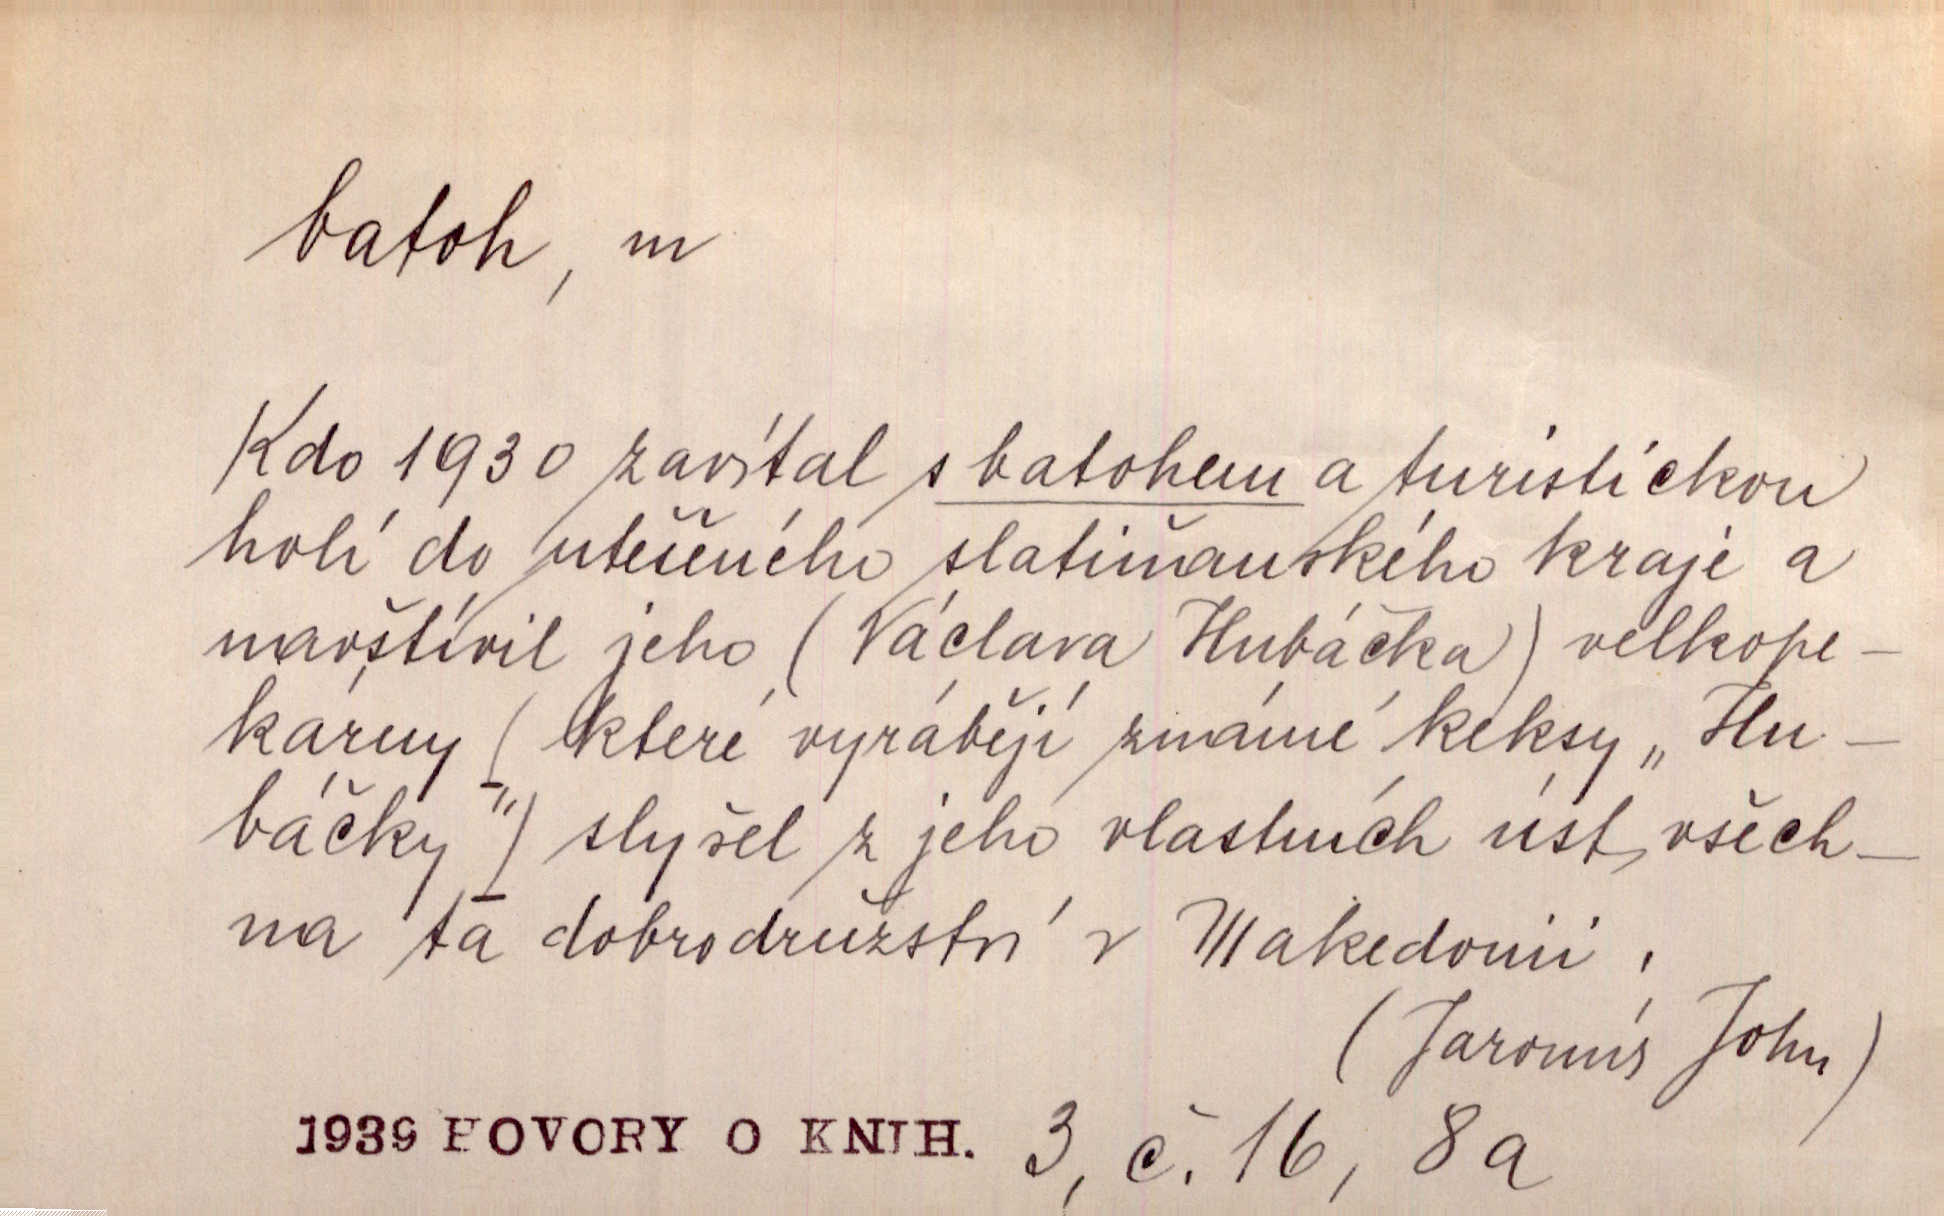 batoh, m
Kdo 1930 zavítal s batohem a turistickou
holí do utěšeného slatiňanského kraje a
navštívil jeho (Václava Hubáčka) velkope-
kárny (které vyrábějí známé keksy „Hu-
báčky") slyšel z jeho vlastních úst, všech-
na ta dobrodružství v Makedonii.
(Jaromír John)
1939 HOVORY O KNIH. 3, č. 16, 8a